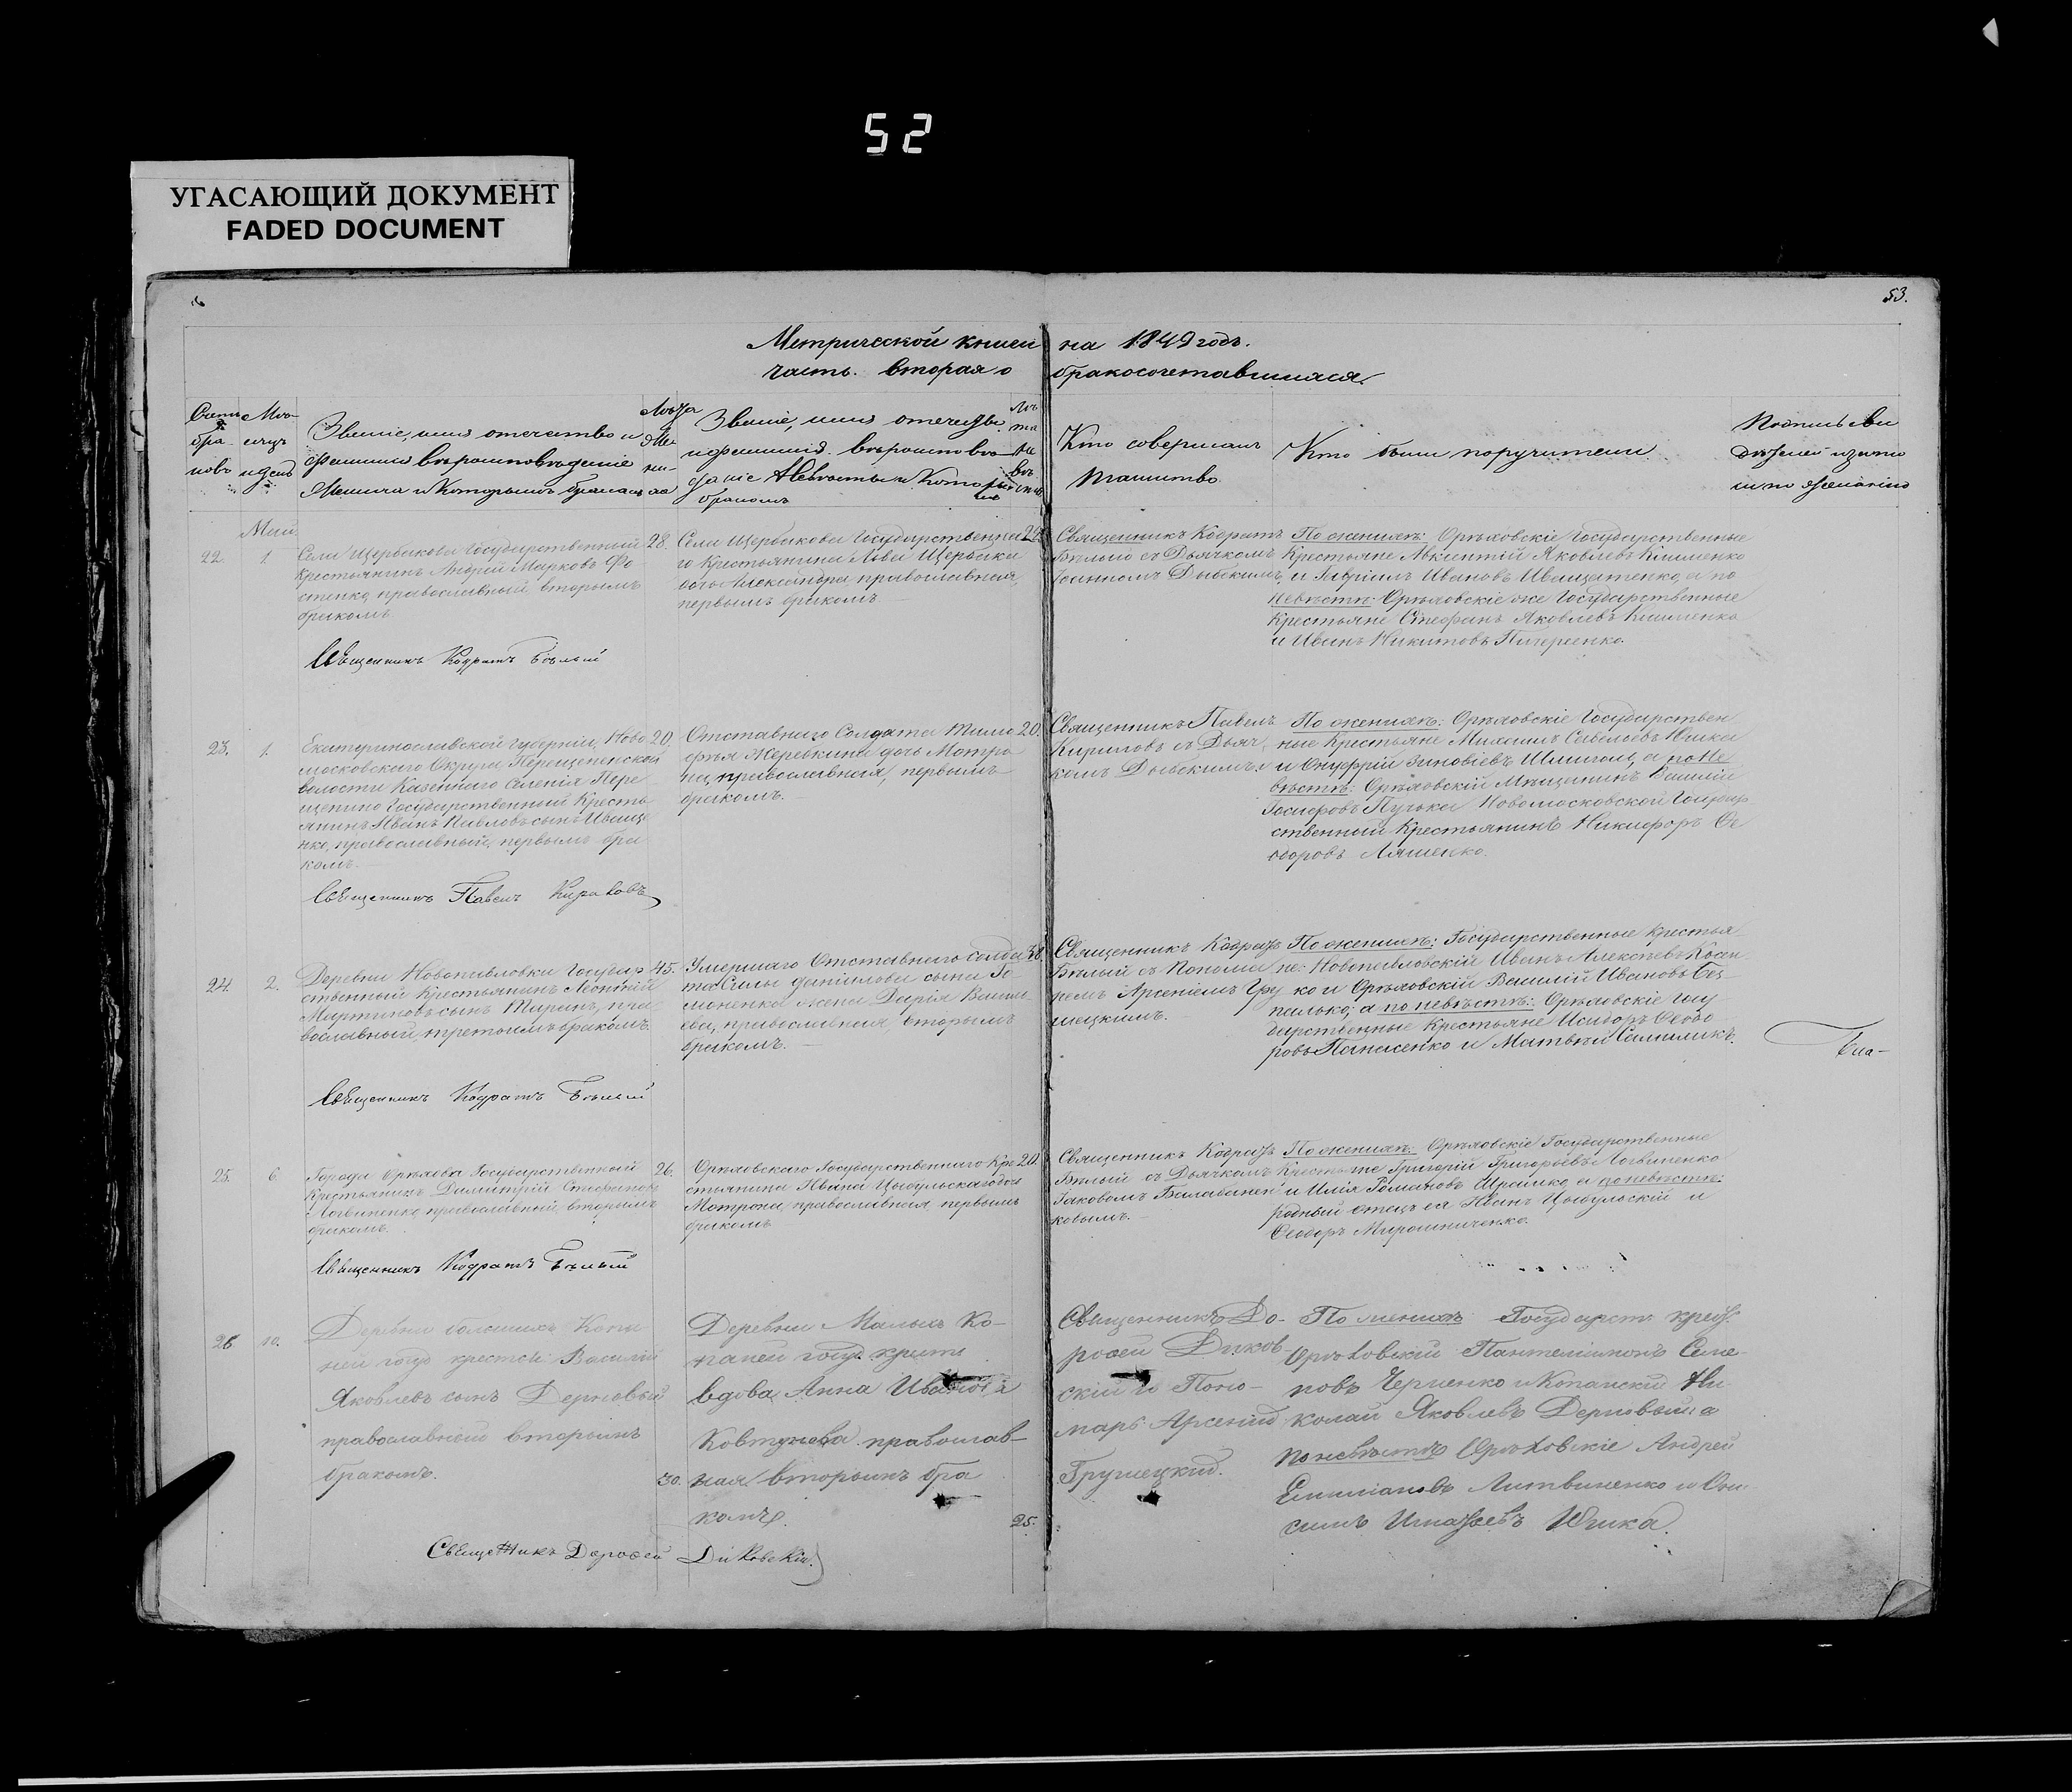 52
УГАСАЮЩИЙ ДОКУМЕНТ
FADED DOCUMENT
53.
Метрической книги на 1849 годъ.
часть вторая о бракосочетавшихся
Счетъ бра- ковъ
Мѣ- сяцъ и день
Званіе, имя отечество и
фамилия вѣроисповѣденіе
Жениха и которымъ бракомъ
Лѣта же- ни- ха
Званіе, имя отечество
и фамилия вѣроисповѣ-
даніе Невѣсты и которымъ
бракомъ
Лѣ- та не- вѣ- сты
Кто совершалъ
таинство
Кто были поручители
Май
22.
1.
Села Щербакова Государственный
Крестьянинъ Андрей Марковъ Фо
стенко, православный, вторымъ
бракомъ
28.
Села Щербакова Государственна
го Крестьянина Льва Щербаки
дочь Александра, православная,
первымъ бракомъ.
Священникъ Кодратъ
Бѣлый съ Дьячкомъ
Іоанномъ Дыбскимъ
По женихѣ: Орѣховскіе Государственные
Крестьяне Авксентій Яковлевъ Клименко
и Гавріилъ Ивановъ Иващенко, а по
невѣстѣ: Орѣховскіе же Государственные
Крестьяне Стефанъ Яковлевъ Клименко
и Иванъ Никитовъ
Священникъ Кодратъ Бѣлый
23.
1.
Екатеринославской Губерніи, Ново
московскаго Округа Перещепенской
волости Казеннаго Селенія Пере
щепино Государственный Кресть
янинъ Иванъ Павловъ сынъ Иваще
нко, православный, первымъ бра
комъ.
20.
Отставнаго Солдата Тимо
фѣя Жеребкина дочь Мотро
на, православная, первымъ
бракомъ.
20.
Священникъ Павелъ
Кириловъ съ Дьяч
комъ Дыбскимъ
По женихѣ: Орѣховскіе Государствен
ные Крестьяне Михаилъ Савельевъ Юшка
и Онуфрій Зиновіевъ а по не
вѣстѣ: Орѣховскій Мѣщанинъ
Іосифовъ Пугька Новомосковской Государ
ственный Крестьянинъ Никифоръ Ѳе
одоровъ Ляшенко.
Священникъ Павелъ
24.
2.
Деревни Новопавловки Государ
ственный Крестьянинъ Леонтій
Мартиновъ сынъ Таранъ, пра
вославный, третьимъ бракомъ.
45.
Умершаго Отставнаго солда
та Силы Данілова сына Го
моненка жена Дарія Васил
ева, православная, вторымъ
бракомъ.
38
Священникъ Кодратъ
Бѣлый съ Понома
ремъ Арсеніемъ Гру
шецкимъ.
По женихѣ: Государственные Крестья
не: Новопавловскій Иванъ Алексѣевъ Косен
ко и Орѣховскій Василій Ивановъ Без
палько; а по невѣстѣ: Орѣховскіе Госу
дарственные Крестьяне Исидоръ Ѳеодо
ровъ Панасенко и Матвѣй
Священникъ Кодратъ Бѣлый
25.
6.
Города Орѣхова Государственный
Крестьянинъ Димитрій Стефановъ
Логвиненко, православный, вторымъ
бракомъ.
26.
Орѣховскаго Государственнаго Кре
стьянина Ивана Цыбульскаго дочь
Мотрона, православная, первымъ
бракомъ
20.
Священникъ Кодратъ
Бѣлый съ Дьячкомъ
Іаковомъ Балабанен
ковымъ.
По женихѣ: Орѣховскіе Государственные
Крестьяне Григорій Григорьевъ Логвиненко
и Илія Романовъ а по невѣстѣ:
родный отецъ ея Иванъ Цыбульскій и
Ѳеодоръ Мирошниченко.
Священникъ Кодратъ Бѣлый
26.
10.
Деревни большихъ Копа
ней госуд крестья Василій
Яковлевъ сынъ Дерновый
православный вторымъ
бракомъ.
30.
Деревни Малыхъ Ко-
паней госуд. крести
вдова Анна Иванова
Ковтунова православ-
ная вторымъ бра
комъ.
25.
Священникъ До-
роѳей Диков-
скій и Поно-
марь Арсеній
Грушецкий.
По женихѣ Государст. крест.
Орѣховскій Пантелиимонъ Семе-
новъ Черненко и Копанский Ни
колай Яковлевъ Дерновый а
по невѣстѣ Орѣховскіе Андрей
Емилиановъ Литвиненко и Они
симъ Игнатьевъ Юшка.
Священникъ Дороѳей Диковскій